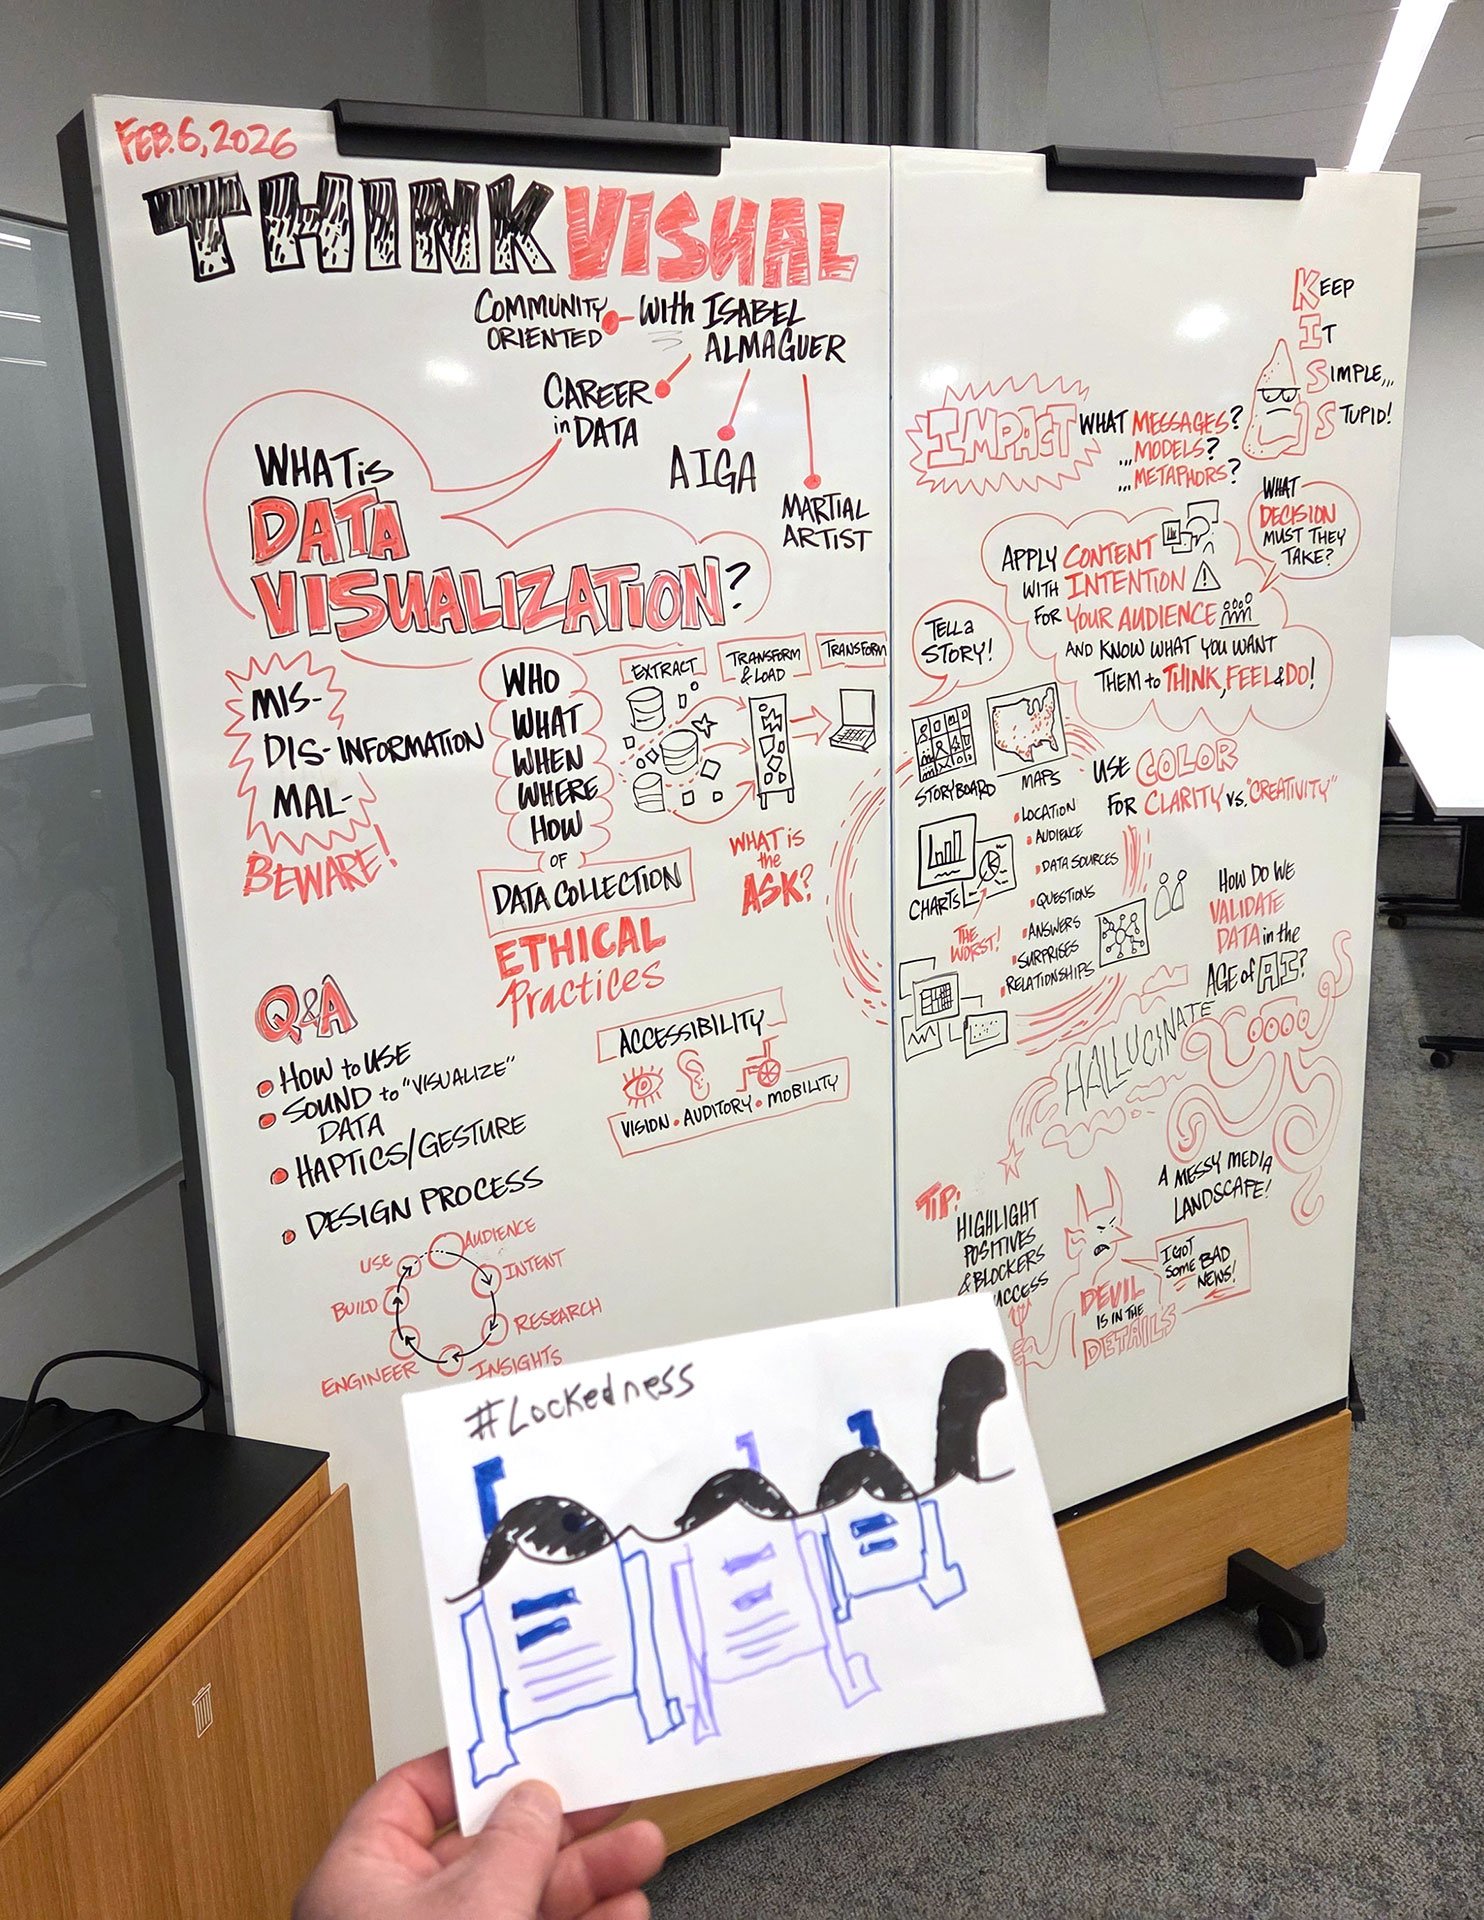 FEB. 6, 2026
THINK VISUAL
COMMUNITY
ORIENTED
with ISABEL
ALMAGUER
CAREER
in DATA
AIGA
MARTIAL
ARTIST
WHAT is
DATA
VISUALIZATION?
MIS-
DIS- INFORMATION
MAL-
BEWARE!
WHO
WHAT
WHEN
WHERE
HOW
OF
DATA COLLECTION
ETHICAL
Practices
EXTRACT
TRANSFORM
& LOAD
TRANSFORM
WHAT is
the
ASK?
Q&A
HOW to USE
SOUND to "VISUALIZE"
DATA
HAPTICS/GESTURE
DESIGN PROCESS
AUDIENCE
INTENT
RESEARCH
INSIGHTS
ENGINEER
BUILD
USE
ACCESSIBILITY
VISION • AUDITORY • MOBILITY
KEEP
IT
SIMPLE...
STUPID!
IMPACT
WHAT MESSAGES?
...MODELS?
...METAPHORS?
WHAT
DECISION
MUST THEY
TAKE?
APPLY CONTENT
WITH INTENTION
FOR YOUR AUDIENCE
AND KNOW WHAT YOU WANT
THEM to THINK, FEEL & DO!
TELL a
STORY!
STORYBOARD
MAPS
USE COLOR
FOR CLARITY vs. "CREATIVITY"
CHARTS
THE
WORST!
• LOCATION
• AUDIENCE
• DATA SOURCES
• QUESTIONS
• ANSWERS
• SURPRISES
• RELATIONSHIPS
HOW DO WE
VALIDATE
DATA in the
AGE of AI?
HALLUCINATE
A MESSY MEDIA
LANDSCAPE!
TIP:
HIGHLIGHT
POSITIVES
& BLOCKERS
UCCESS
DEVIL
IS IN THE
DETAILS
I GOT
SOME BAD
NEWS!
#Lockedness